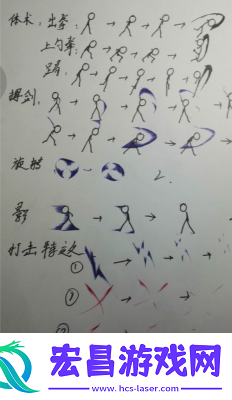 体术：出拳：
上勾拳：
踢：
挥剑：
旋转
2.
影
打击特效
①
③
宏昌游戏网
www.hcs-laser.com